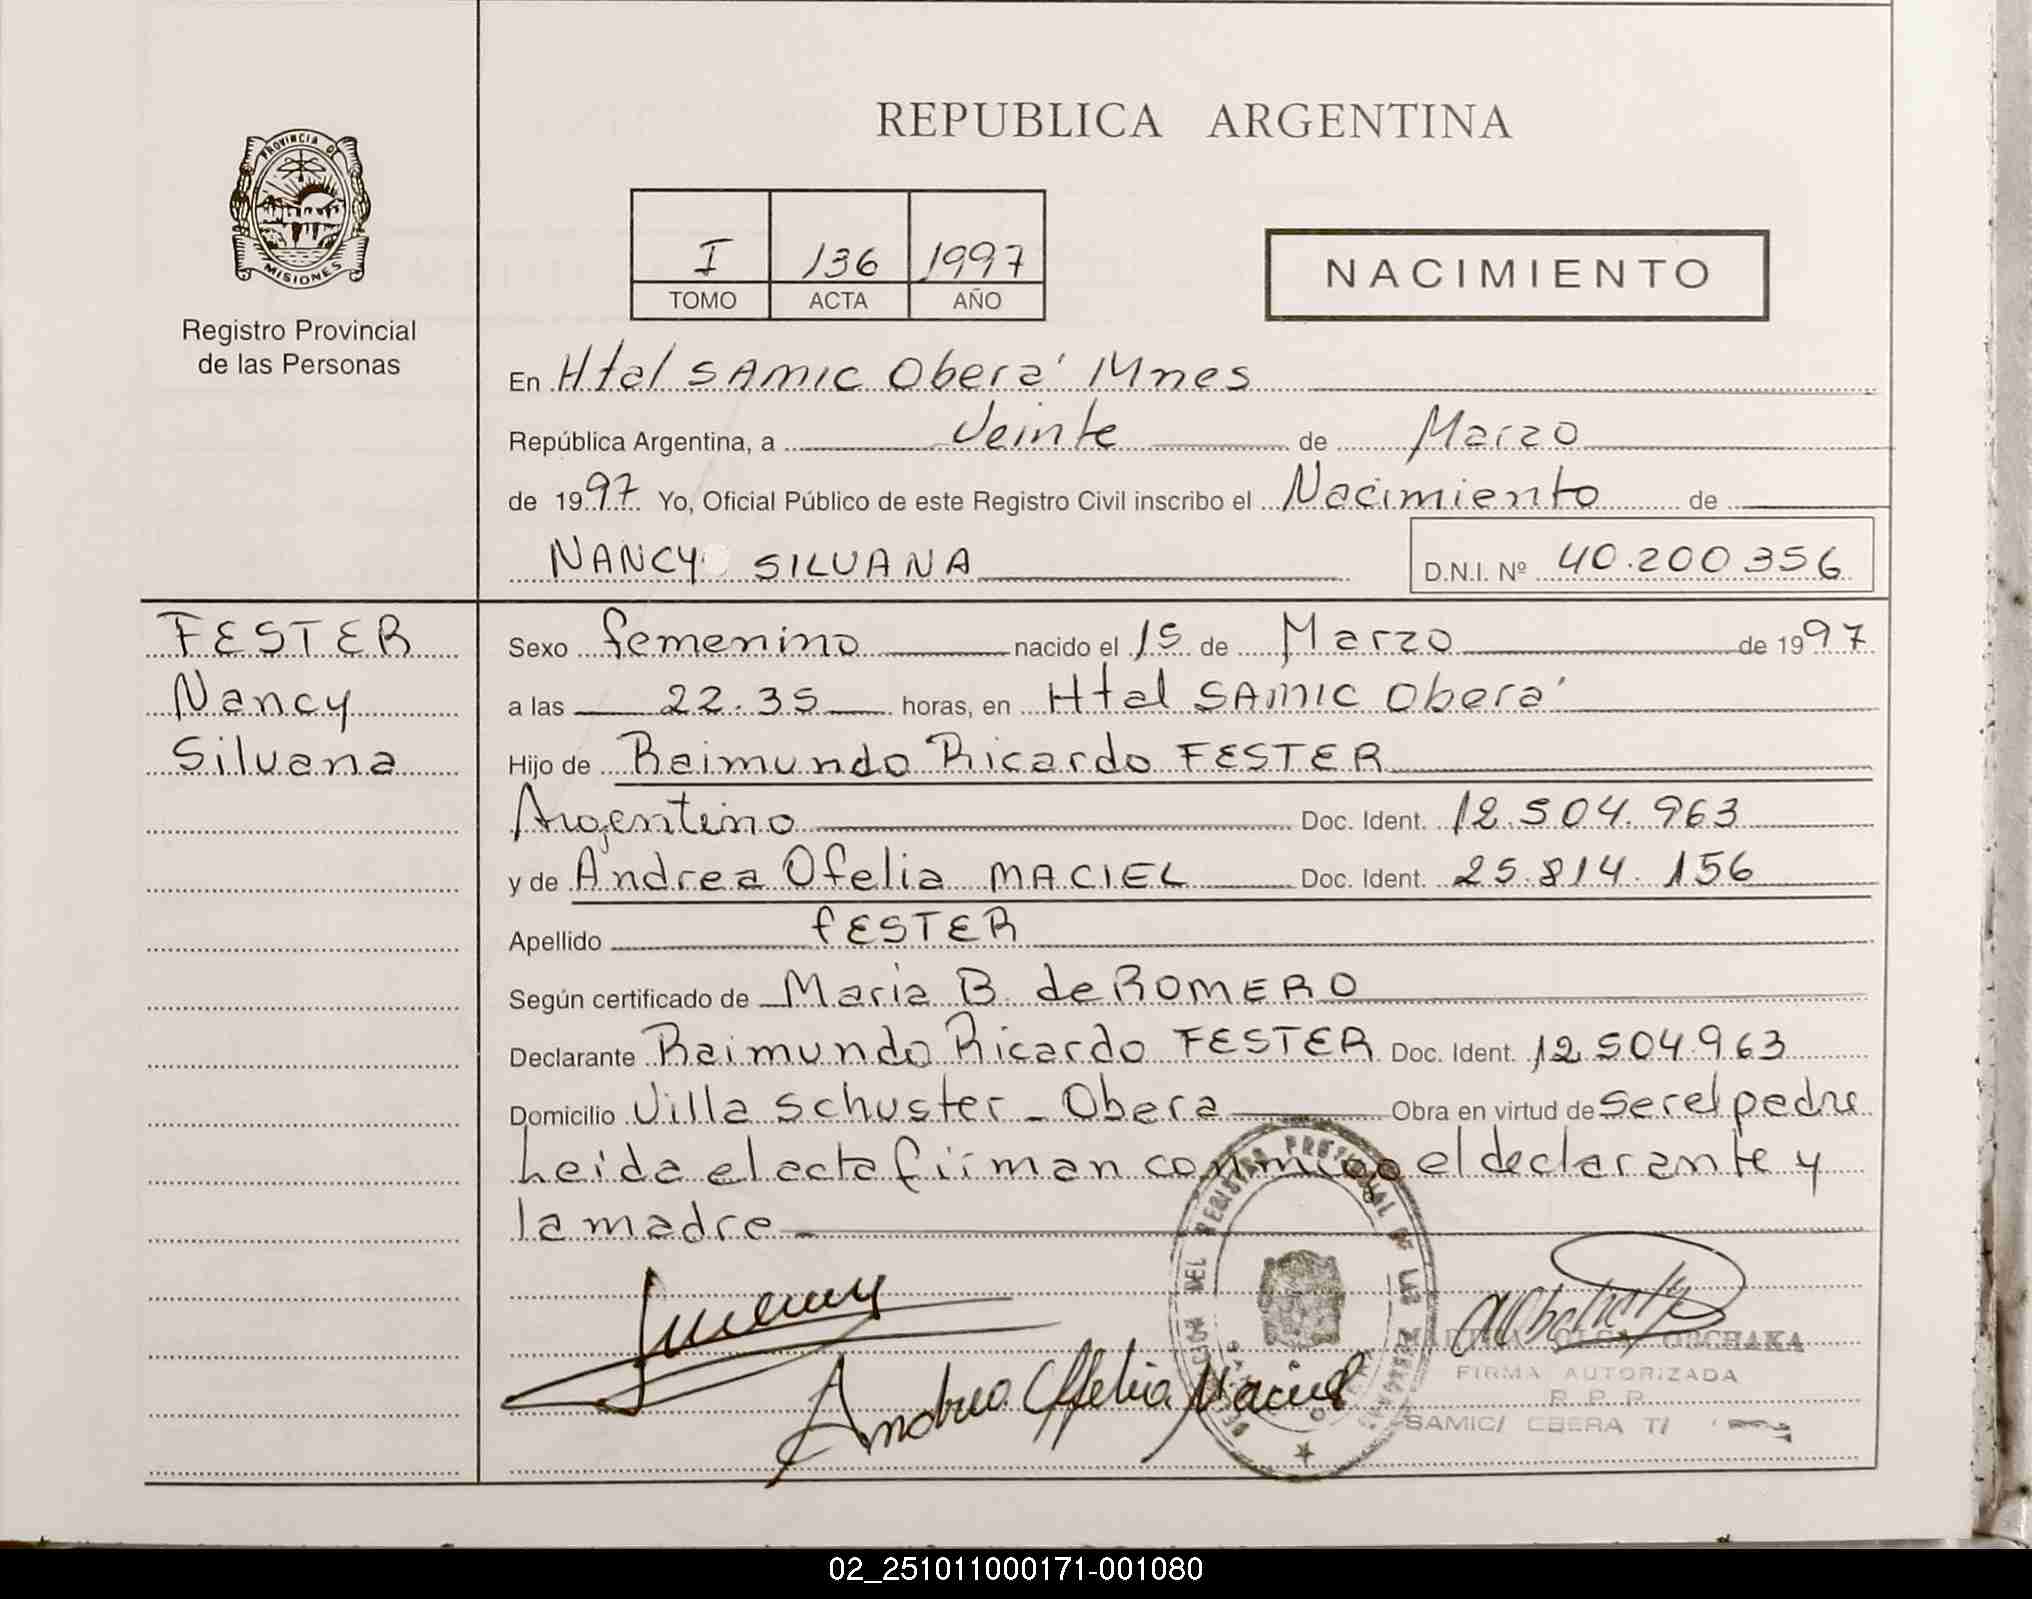 REPUBLICA ARGENTINA
PROVINCIA DE
MISIONES
Registro Provincial
de las Personas
I 136 1997
TOMO ACTA AÑO
NACIMIENTO
En Htal SAMIC Oberá Mnes
República Argentina, a Veinte de Marzo
de 1997 Yo, Oficial Público de este Registro Civil inscribo el Nacimiento de
NANCY SILVANA D.N.I. Nº 40.200356
FESTER
Nancy
Silvana
Sexo femenino nacido el 15 de Marzo de 1997
a las 22.35 horas, en Htal SAMIC Oberá
Hijo de Raimundo Ricardo FESTER
Argentino Doc. Ident. 12.504.963
y de Andrea Ofelia MACIEL Doc. Ident. 25.814.156
Apellido FESTER
Según certificado de Maria B. de ROMERO
Declarante Raimundo Ricardo FESTER Doc. Ident. 12.504.963
Domicilio Villa Schuster - Obera Obra en virtud de ser el padre
Leida el acta firman conmigo el declarante y
la madre
Andrea Offelia Maciel
REGISTRO PROVINCIAL DE LAS
ORCHAKA
FIRMA AUTORIZADA
R. P. P.
SAMIC/ OBERA T/
02_251011000171-001080